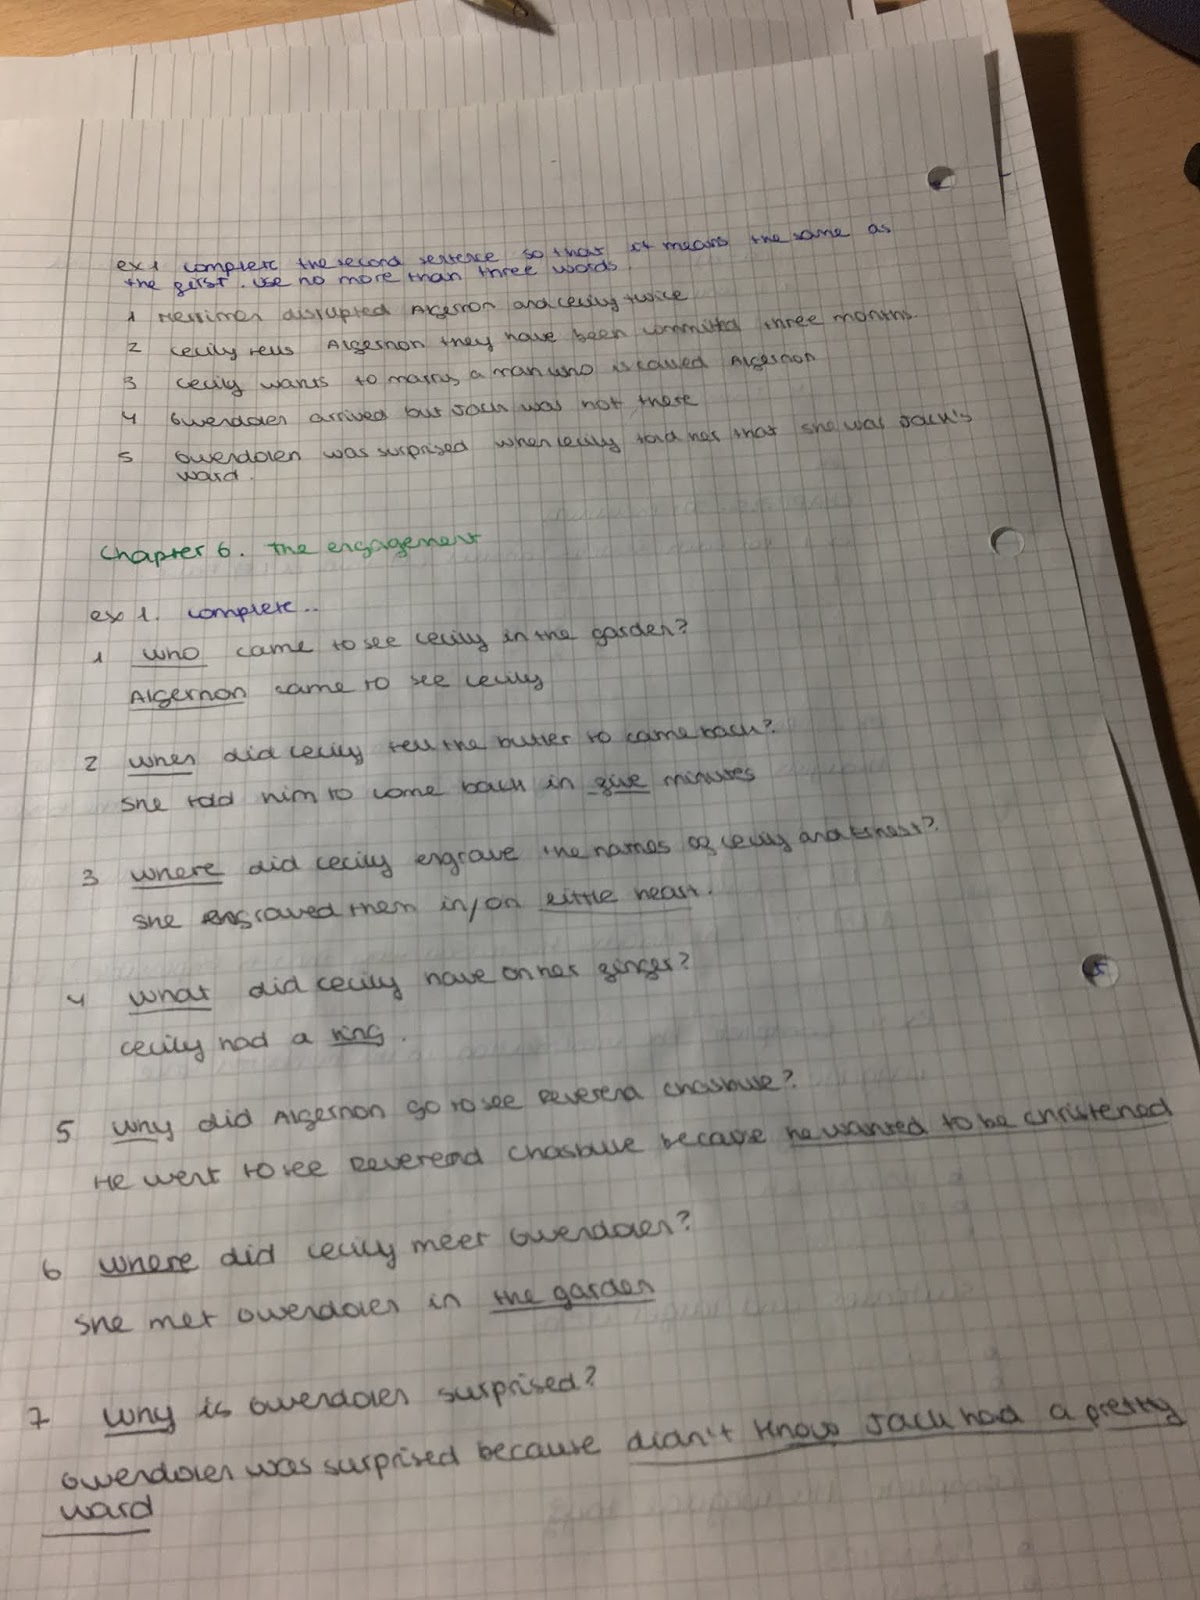 ex 1 complete the second sentence so that it means the same as
the first. use no more than three words
1 Merriman disrupted Algernon and Cecily twice
2 Cecily tells Algernon they have been committed three months.
3 Cecily wants to marry a man who is called Algernon
4 Gwendolen arrived but Jack was not there
5 Gwendolen was surprised when Cecily told her that she was Jack's
ward.
Chapter 6. The engagement
ex 1. complete..
1 who came to see Cecily in the garden?
Algernon came to see Cecily
2 when did Cecily tell the butler to came back?
She told him to come back in five minutes
3 where did Cecily engrave the names of Cecily and Ernest?
She engraved them in/on little heart.
4 what did Cecily have on her finger?
Cecily had a ring.
5 why did Algernon go to see Reverend Chasbule?
He went to see Reverend Chasbule because he wanted to be christened
6 where did Cecily meet Gwendolen?
She met Gwendolen in the garden
7 why is Gwendolen surprised?
Gwendolen was surprised because didn't know Jack had a pretty
ward